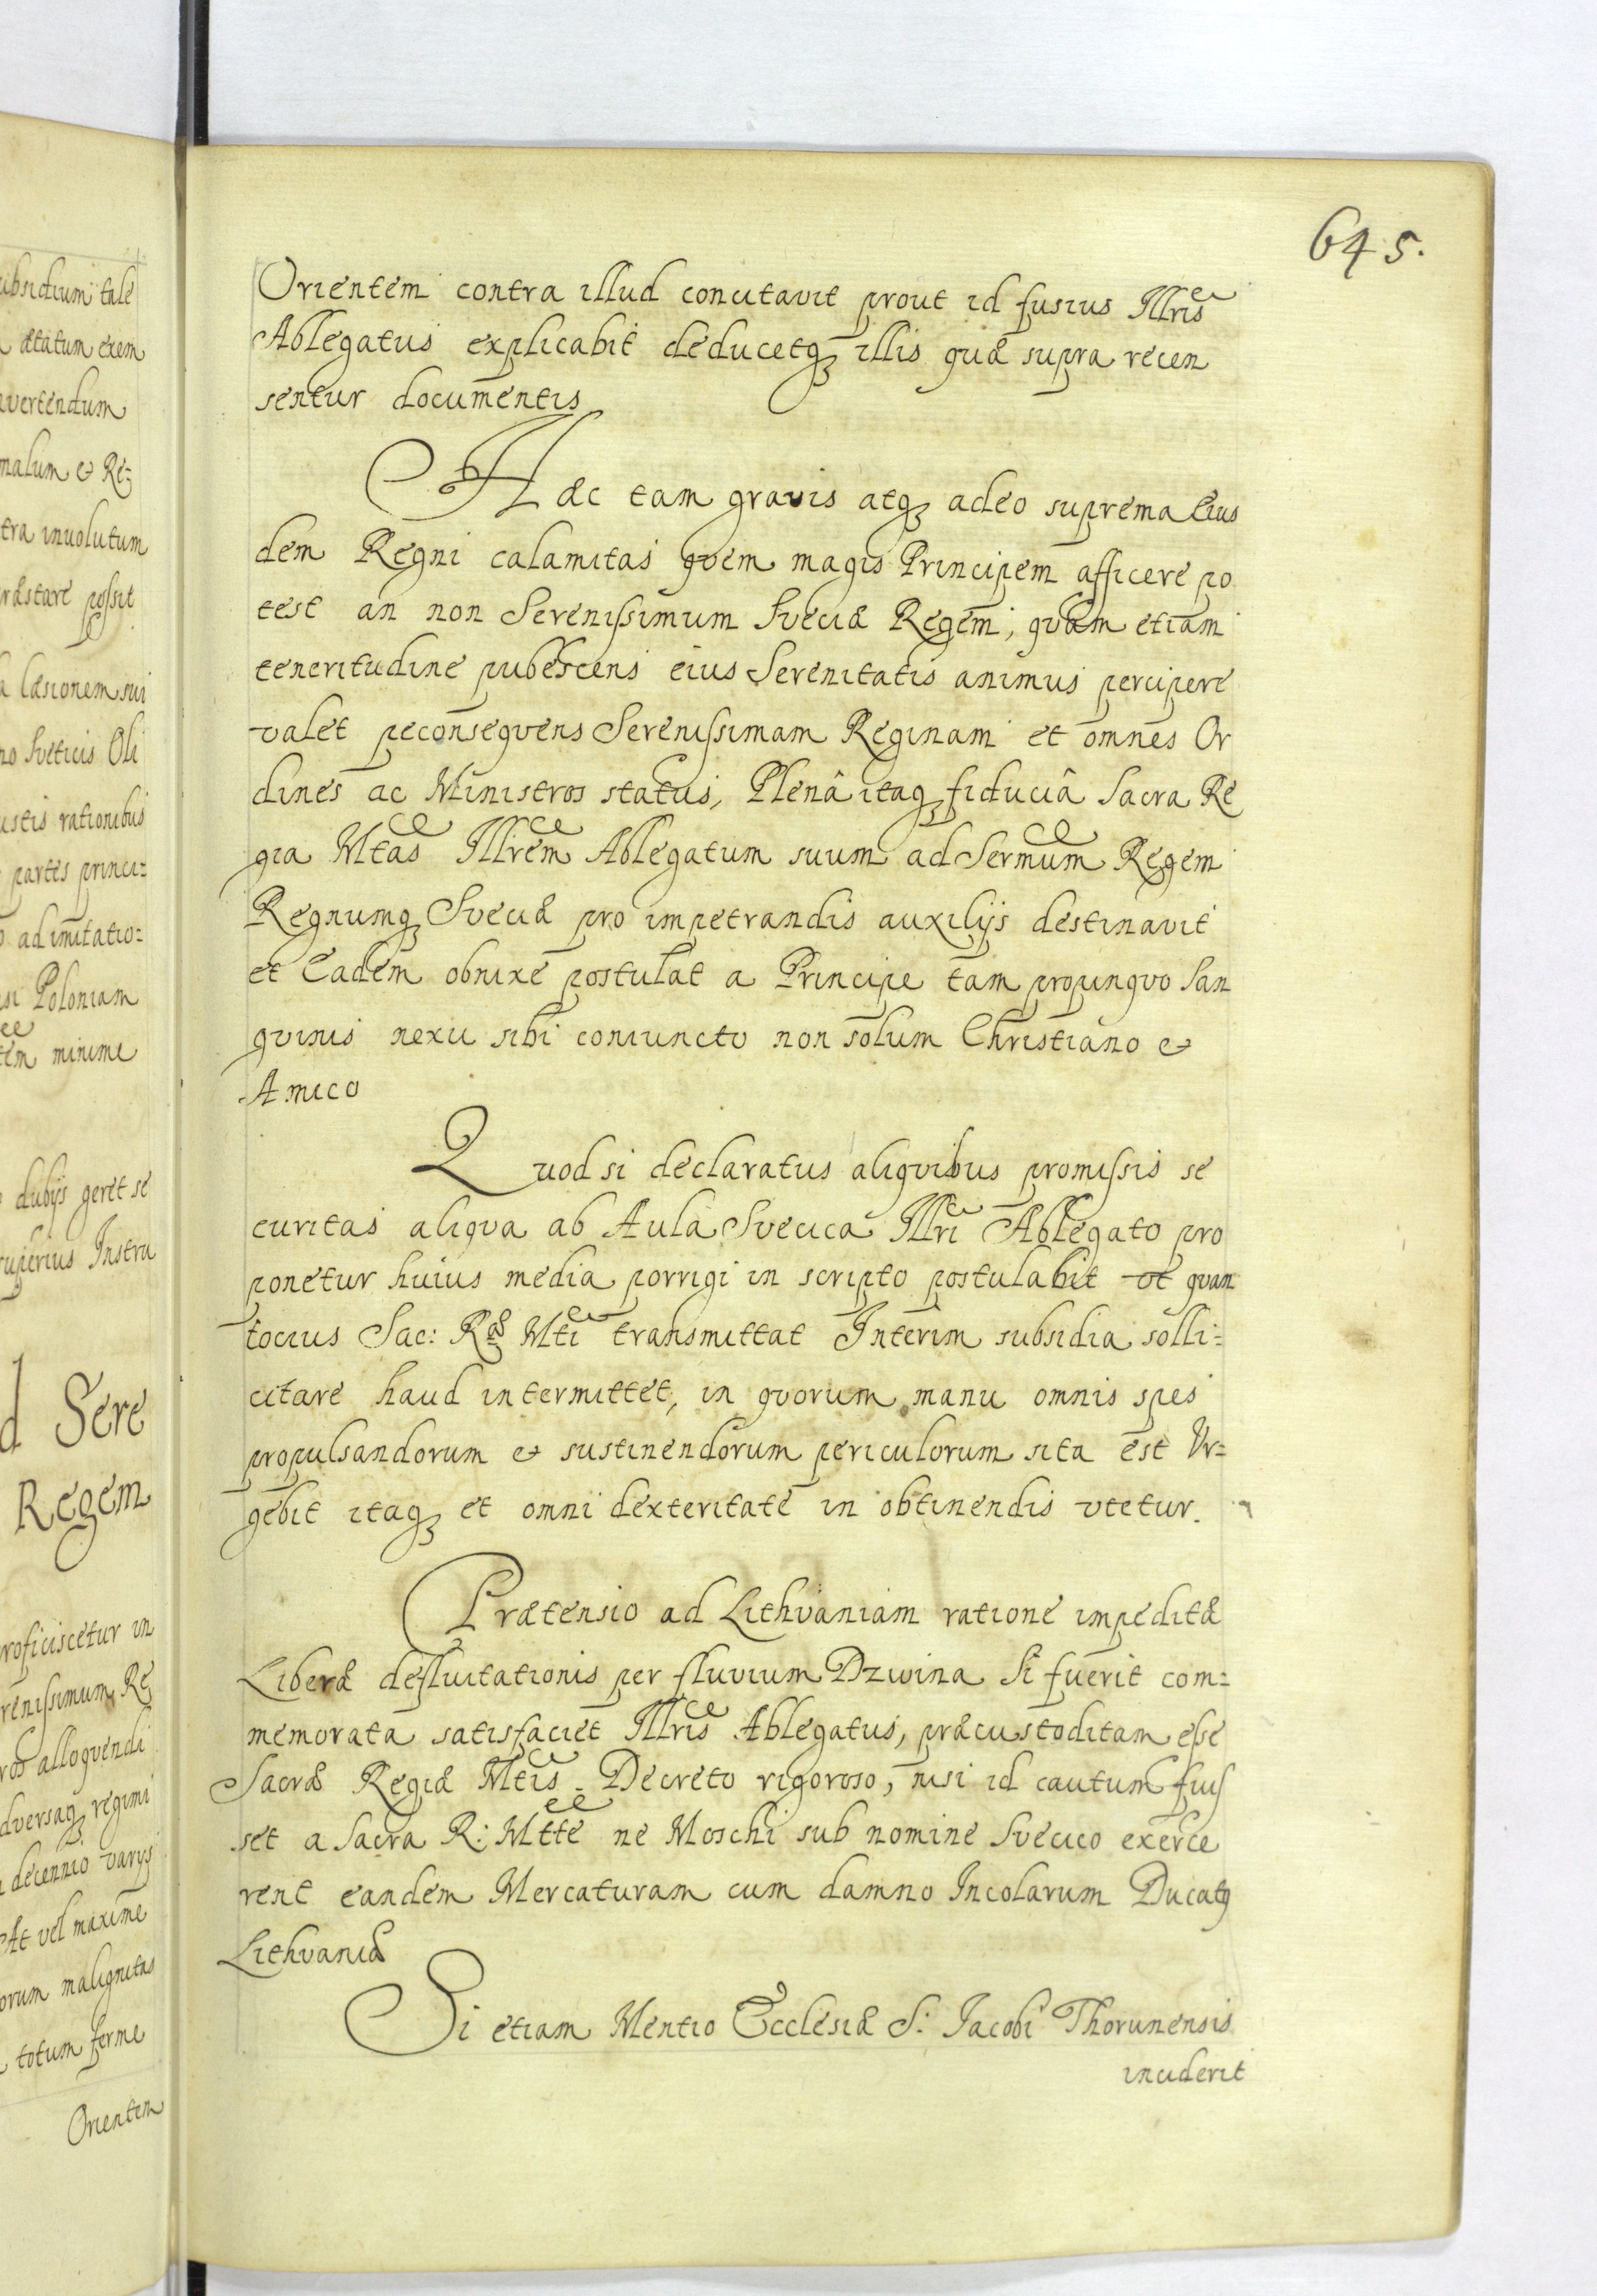 645.
Orientem contra illud concitavit prout id fusius Illris
Ablegatus explicabit deducetq illis quæ supra recen
sentur documentis
Hæc tam gravis atq adeo suprema eius
dem Regni calamitas quem magis Principem afficere po
test an non Serenissimum Sveciæ Regem, quam etiam
teneritudine pubescens eius Serenitatis animus percipere
valet peconsequens Serenissimam Reginam et omnes Or
dines ac Ministros status, Plenâ itaq fiduciâ Sacra Re
gia Mtas Illrem Ablegatum suum ad Sermum Regem
Regnumq Sveciæ pro impetrandis auxilijs destinavit
et Eadem obnixe postulat a Principe tam propinquo San
guinis nexu sibi coniuncto non solum Christiano &
Amico
Quod si declaratus aliquibus promissis se
curitas aliqua ab Aula Svecica Illri Ablegato pro
ponetur huius media porrigi in scripto postulabit ut quan
tocius Sac: Ræ Mti transmittat Interim subsidia solli=
citare haud intermittet, in quorum manu omnis spes
propulsandorum & sustinendorum periculorum sita est Vr=
gebit itaq et omni dexteritate in obtinendis vtetur.
Prætensio ad Lithvaniam ratione impeditæ
Liberæ defluitationis per fluvium Dzwina Si fuerit com=
memorata satisfaciet Illris Ablegatus, præcustoditam esse
Sacræ Regiæ Mtis Decreto rigoroso, nisi id cautum fuis
set a Sacra R: Mtte ne Moschi sub nomine Svecico exerce
rent eandem Mercaturam cum damno Incolarum Ducatq
Lithvaniæ
Si etiam Mentio Ecclesiæ S: Jacobi Thorunensis
inciderit
ubsidium tale
ætatum exem
vertendum
malum & Re=
tra involutum
ræstare possit
læsionem sui
no Sveticis Oli
ustis rationibus
partes princi=
ad imitatio=
si Poloniam
tem minime
dubijs geret se
uperius Instru
d Sere
Regem
roficiscetur in
renissimum Re
ros alloquendi
dversaq regimi
decennio varys
At vel maxime
orum malignitas
totum ferme
Orientem